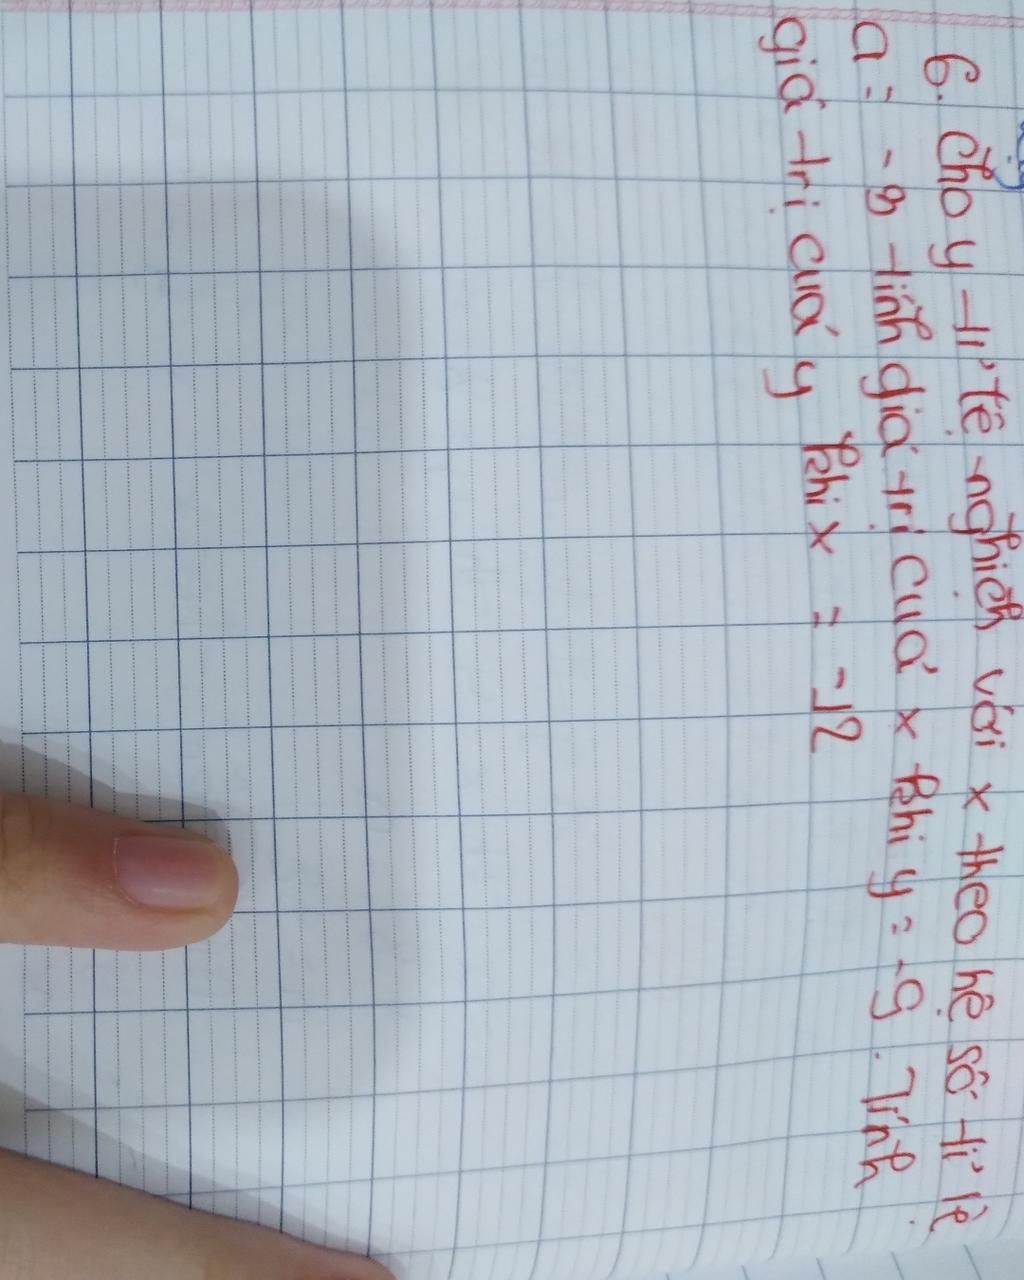 6. Cho y tỉ tệ nghịch với x theo hệ số tỉ lệ
a = -8 tính giá trị cuả x khi y = -9. Tính
giá trị cuả y khi x = -12